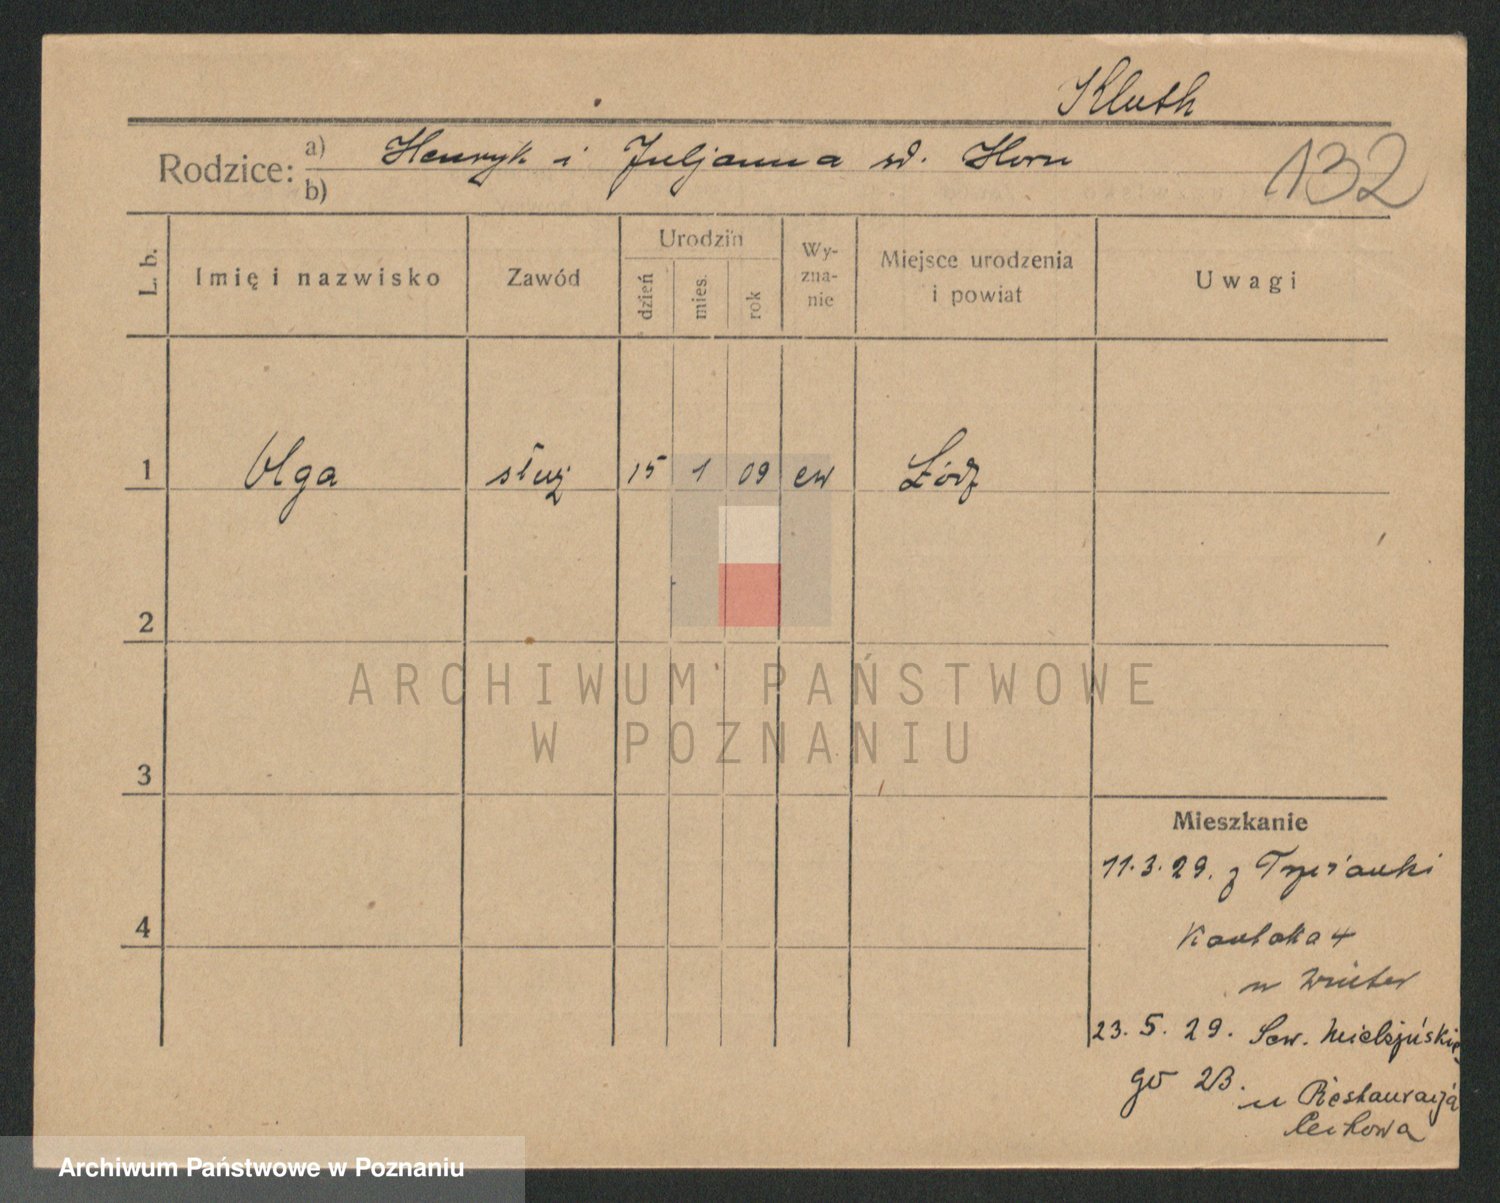 Kluth
Rodzice: a) Henryk i Juljanna sd. Horn
b)
132
L. b.
Imię i nazwisko
Zawód
Urodzin
dzień
mies.
rok
Wy-
zna-
nie
Miejsce urodzenia
i powiat
Uwagi
1 Olga służ 15 1 09 ew Łódź
2
3
4
ARCHIWUM PAŃSTWOWE
W POZNANIU
Mieszkanie
11.3.29. z Trzcianki
4
23. 5. 29. Sew. Mielżyńskie
go 23.
u Restauracja
Cechowa
Archiwum Państwowe w Poznaniu